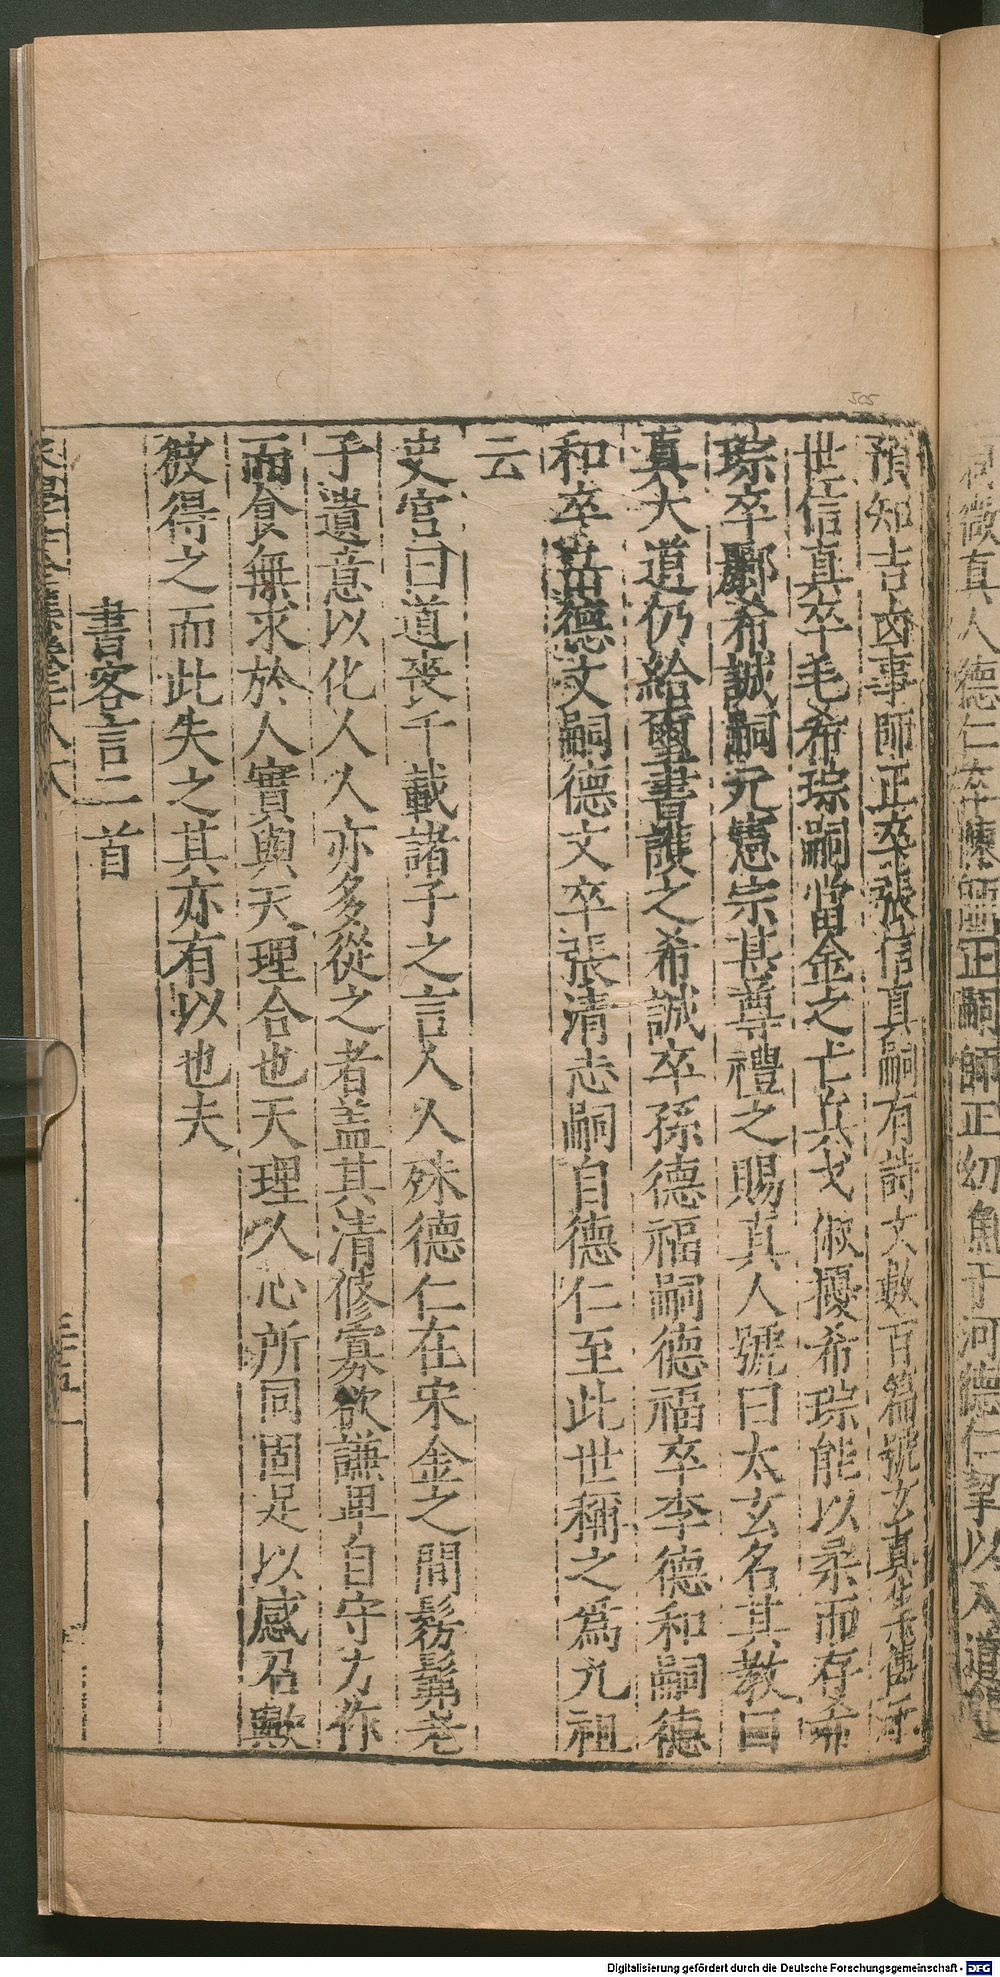 微真人德仁卒陳師正嗣師正幼漁于河德仁挈以入道
預知吉凶事師正卒張信真嗣有詩文數百篇號玄真集傳于
世信真卒毛希琮嗣當金之亡兵戈俶擾希琮能以柔而存希
琮卒酈希誠嗣元憲宗甚尊禮之賜真人號曰太玄名其教曰
真大道仍給璽書護之希誠卒孫德福嗣德福卒李德和嗣德
和卒岳德文嗣德文卒張清志嗣自德仁至此世稱之爲九祖
云
史官曰道喪千載諸子之言人人殊德仁在宋金之間髣髴老
子遺意以化人人亦多從之者盖其清修寡欲謙卑自守力作
而食無求於人實與天理合也天理人心所同固足以感召歟
彼得之而此失之其亦有以也夫
書客言二首
三五
505
Digitalisierung gefördert durch die Deutsche Forschungsgemeinschaft - DFG